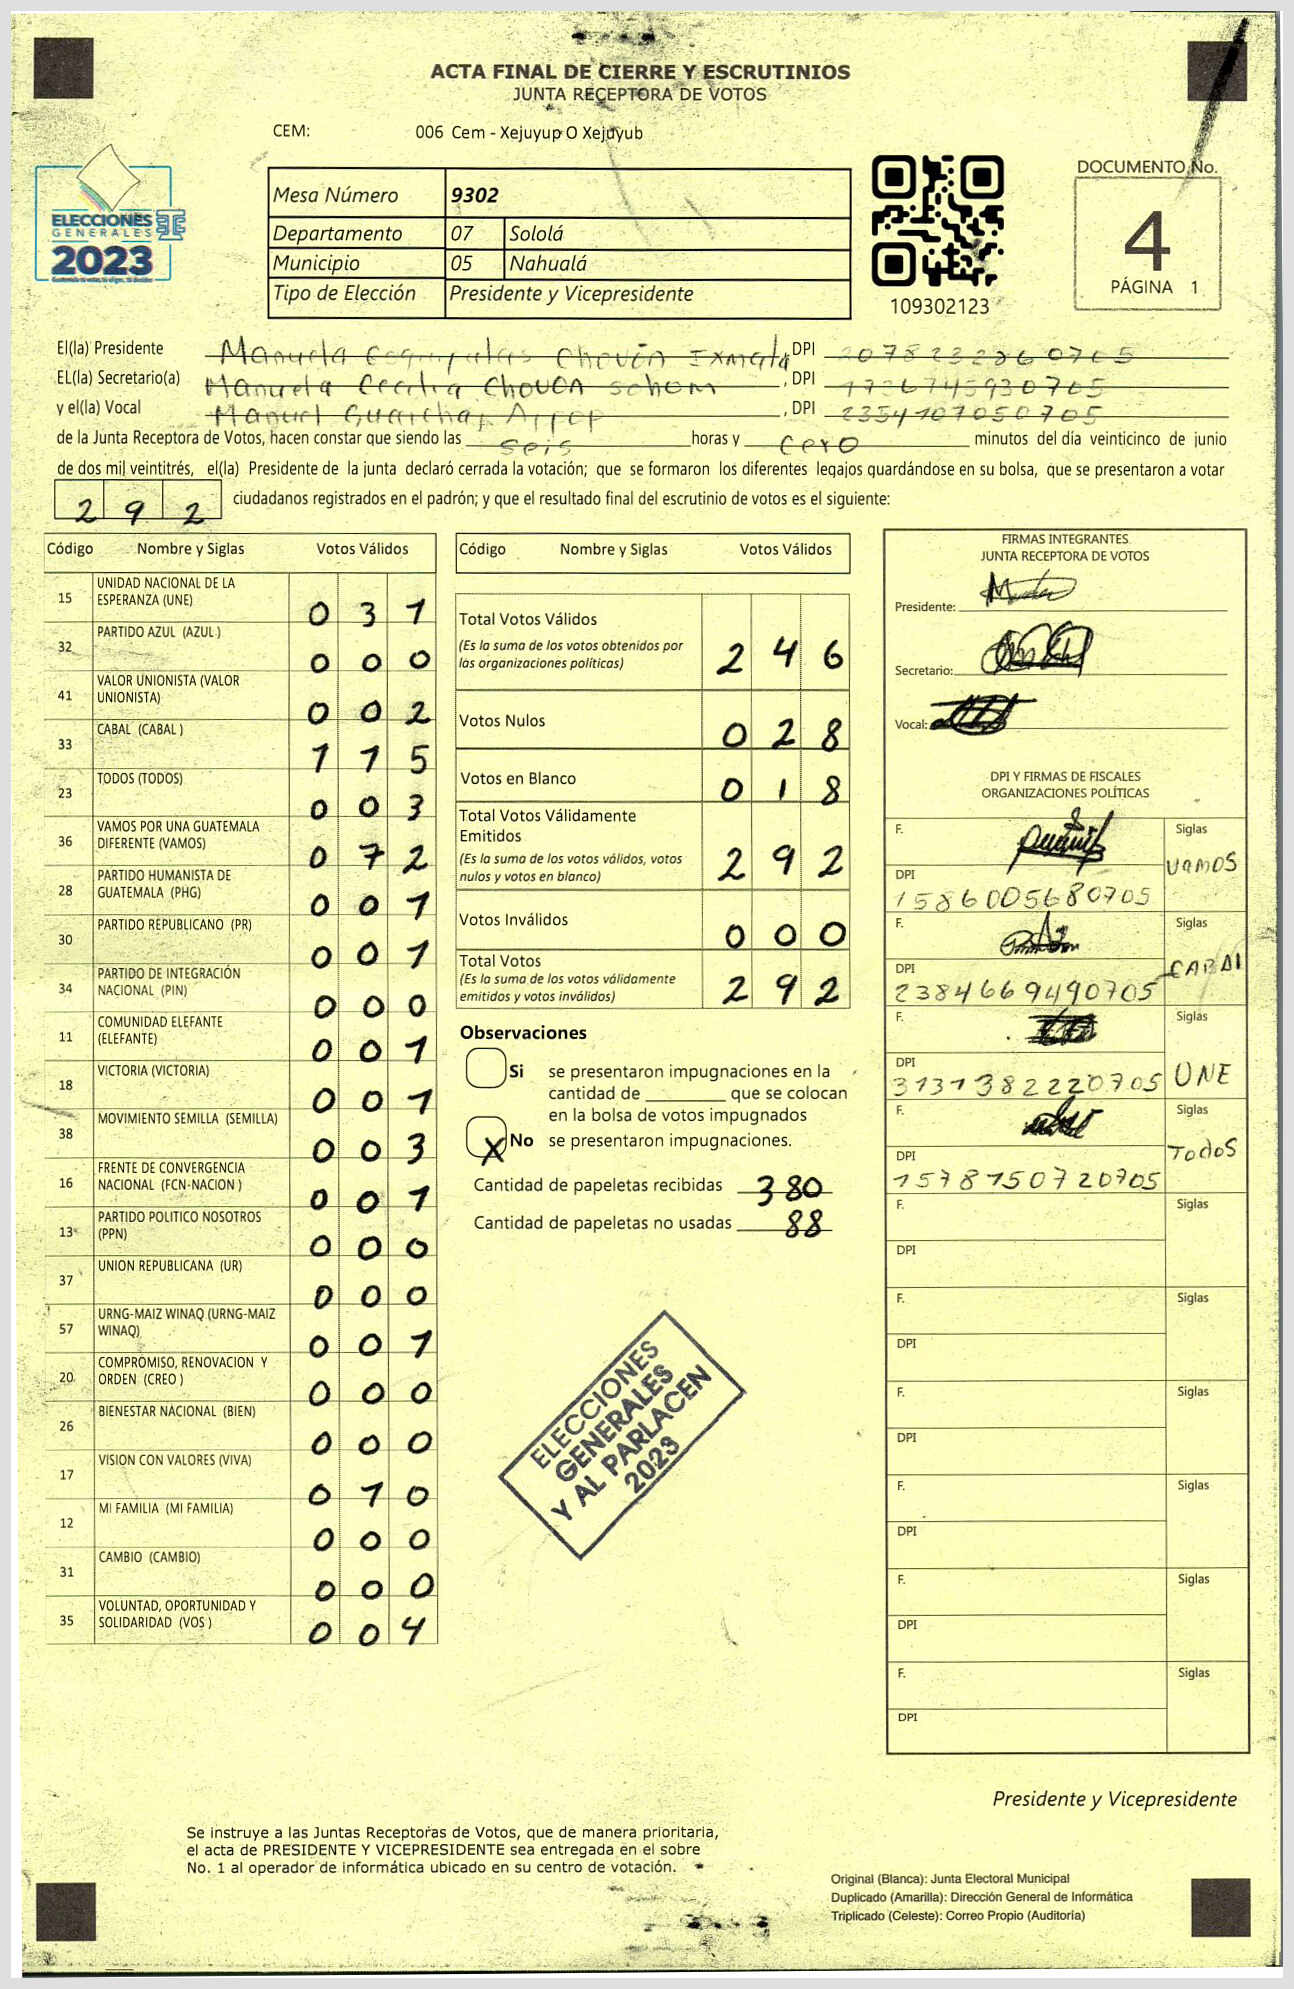 ACTA FINAL DE CIERRE Y ESCRUTINIOS
JUNTA RECEPTORA DE VOTOS
CEM: 006 Cem - Xejuyup O Xejuyub
ELECCIONES
GENERALES
2023
Mesa Número 9302
Departamento 07 Sololá
Municipio 05 Nahualá
Tipo de Elección Presidente y Vicepresidente
109302123
DOCUMENTO No.
4
PÁGINA 1
El(la) Presidente Manuela Esquipulas Chovón Ixmatá, DPI 2078232860705
EL(la) Secretario(a) Manuela Cecilia Chovón Sohom, DPI 1736745930705
y el(la) Vocal Manuel Guarchaj, DPI 2354107050705
de la Junta Receptora de Votos, hacen constar que siendo las seis horas y cero minutos del día veinticinco de junio
de dos mil veintitrés, el(la) Presidente de la junta declaró cerrada la votación; que se formaron los diferentes legajos guardándose en su bolsa, que se presentaron a votar
292 ciudadanos registrados en el padrón; y que el resultado final del escrutinio de votos es el siguiente:
Código Nombre y Siglas Votos Válidos
15 UNIDAD NACIONAL DE LA ESPERANZA (UNE) 031
32 PARTIDO AZUL (AZUL ) 000
41 VALOR UNIONISTA (VALOR UNIONISTA) 002
33 CABAL (CABAL ) 115
23 TODOS (TODOS) 003
36 VAMOS POR UNA GUATEMALA DIFERENTE (VAMOS) 072
28 PARTIDO HUMANISTA DE GUATEMALA (PHG) 001
30 PARTIDO REPUBLICANO (PR) 001
34 PARTIDO DE INTEGRACIÓN NACIONAL (PIN) 000
11 COMUNIDAD ELEFANTE (ELEFANTE) 001
18 VICTORIA (VICTORIA) 001
38 MOVIMIENTO SEMILLA (SEMILLA) 003
16 FRENTE DE CONVERGENCIA NACIONAL (FCN-NACION ) 001
13 PARTIDO POLITICO NOSOTROS (PPN) 000
37 UNION REPUBLICANA (UR) 000
57 URNG-MAIZ WINAQ (URNG-MAIZ WINAQ) 001
20 COMPROMISO, RENOVACION Y ORDEN (CREO ) 000
26 BIENESTAR NACIONAL (BIEN) 000
17 VISION CON VALORES (VIVA) 010
12 MI FAMILIA (MI FAMILIA) 000
31 CAMBIO (CAMBIO) 000
35 VOLUNTAD, OPORTUNIDAD Y SOLIDARIDAD (VOS ) 004
Código Nombre y Siglas Votos Válidos
Total Votos Válidos 246
(Es la suma de los votos obtenidos por
las organizaciones políticas)
Votos Nulos 028
Votos en Blanco 018
Total Votos Válidamente
Emitidos 292
(Es la suma de los votos válidos, votos
nulos y votos en blanco)
Votos Inválidos 000
Total Votos 292
(Es la suma de los votos válidamente
emitidos y votos inválidos)
Observaciones
Si se presentaron impugnaciones en la
cantidad de ________ que se colocan
en la bolsa de votos impugnados
X No se presentaron impugnaciones.
Cantidad de papeletas recibidas 380
Cantidad de papeletas no usadas 88
ELECCIONES
GENERALES
Y AL PARLACEN
2023
FIRMAS INTEGRANTES
JUNTA RECEPTORA DE VOTOS
Presidente:
Secretario:
Vocal:
DPI Y FIRMAS DE FISCALES
ORGANIZACIONES POLÍTICAS
F. Siglas VAMOS
DPI 1586005680705
F. Siglas CABAL
DPI 2384669490705
F. Siglas UNE
DPI 3131382220705
F. Siglas TODOS
DPI 1578150720705
F. Siglas
DPI
F. Siglas
DPI
F. Siglas
DPI
F. Siglas
DPI
F. Siglas
DPI
F. Siglas
DPI
Presidente y Vicepresidente
Se instruye a las Juntas Receptoras de Votos, que de manera prioritaria,
el acta de PRESIDENTE Y VICEPRESIDENTE sea entregada en el sobre
No. 1 al operador de informática ubicado en su centro de votación.
Original (Blanca): Junta Electoral Municipal
Duplicado (Amarilla): Dirección General de Informática
Triplicado (Celeste): Correo Propio (Auditoría)